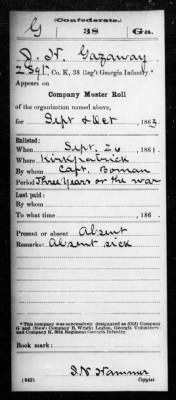 (Confederate.)
G 38 Ga.
J. H. Gazaway
2 Sgt., Co. K, 38 Reg't Georgia Infantry.*
Appears on
Company Muster Roll
of the organization named above,
for Sept & Oct, 1863.
Enlisted:
When Sept. 26, 1861.
Where Kirkpatrick
By whom Capt. Boman
Period Three Years or the war
Last paid:
By whom
To what time , 186 .
Present or absent Absent
Remarks: Absent sick
*This company was successively designated as (Old) Company
G and (New) Company B, Wright Legion, Georgia Volunteers
and Company K, 38th Regiment Georgia Infantry.
Book mark:
J. N. Hammer
(642) Copyist.